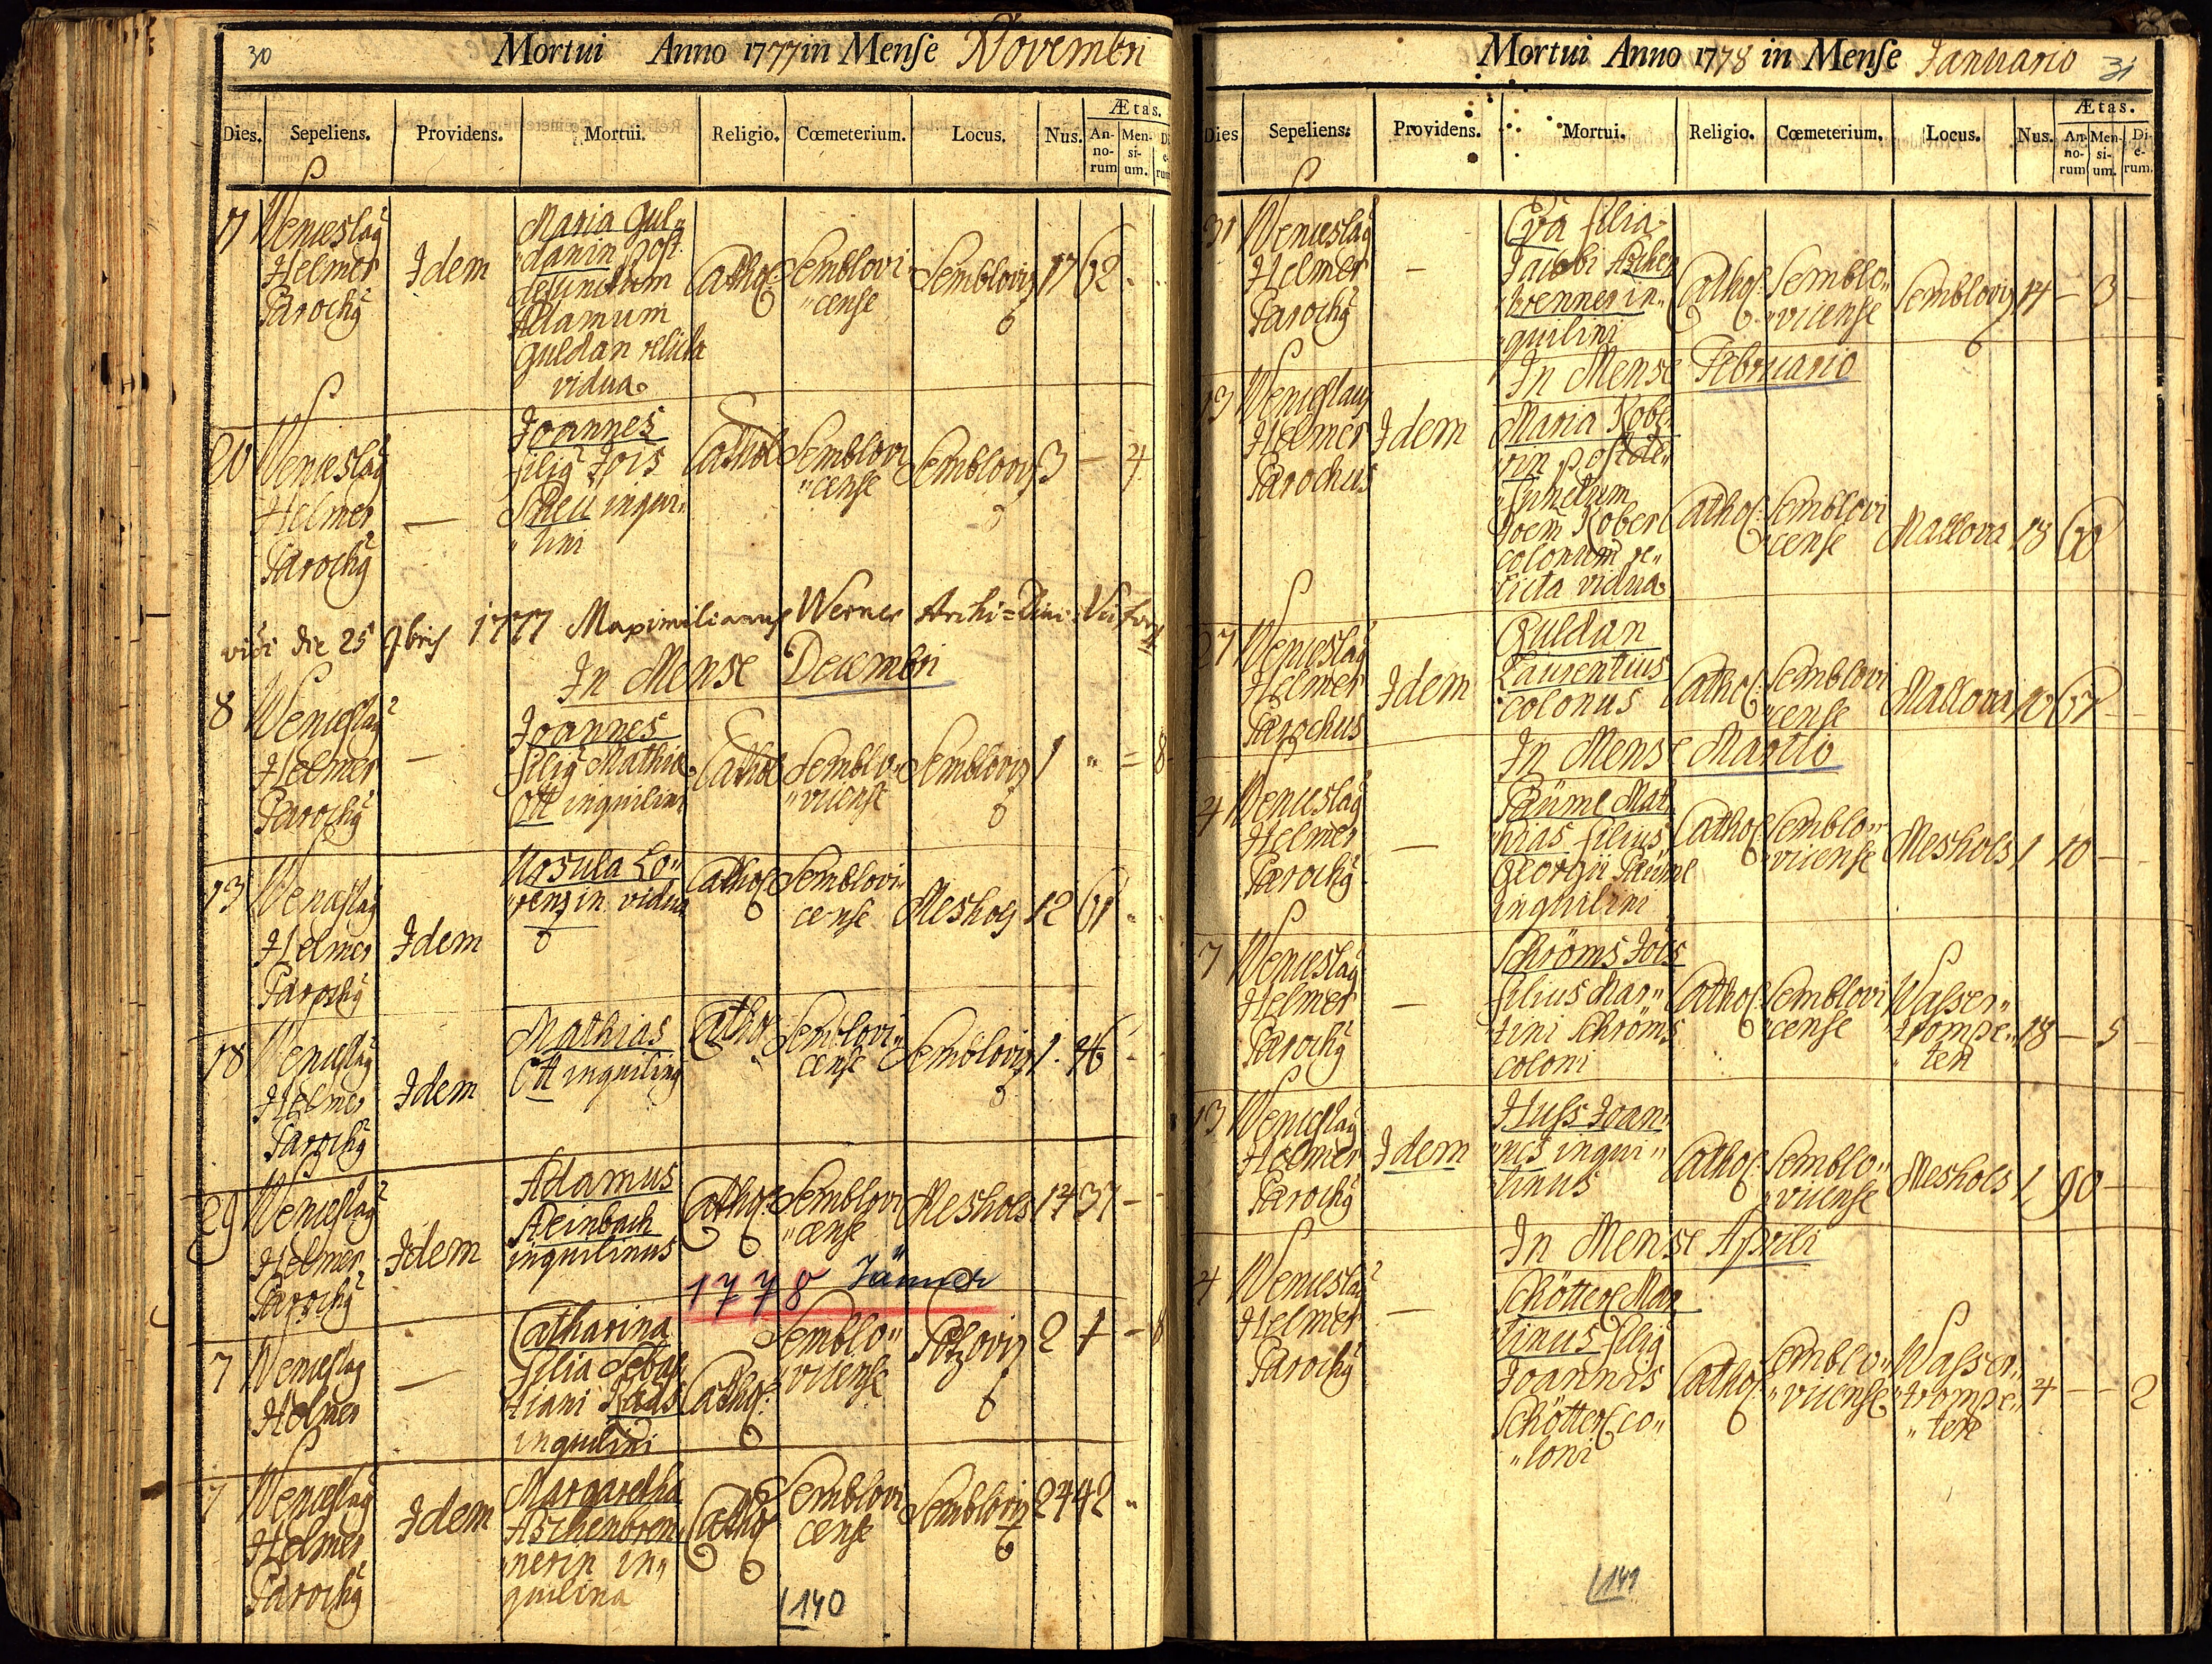 30
Mortui Anno 1777 in Mense Novembri
Dies. Sepeliens. Providens. Mortui. Religio. Cœmeterium. Locus. Nus. Ætas.
An-no-rum Men-si-um. Di-e-rum
17 Wenceslaus Helmer Parochus
Idem
Maria Gul„
„danin post
defunctum
Adamum
Guldan relicta
vidua
Cathol: Semblovi
„cense
Sembloviz 17 62 - -
20 Wenceslaus
Helmer
Parochus
—
Joannes
filius Jois
Scheu inqui„
„lini
Cathol Semblovi
„cense
Sembloviz 3 — 4
vidi die 25 9bris 1777 Maximilianus Werner Archi=
In Mense Decembri
8 Wenceslaus
Helmer
Parochus
—
Joannes
filius Mathiæ
Ott inquilini
Cathol Semblo„
„vicense
Sembloviz 1 „ = 8
13 Wenceslaus
Helmer
Parochus
Idem
Ursula Lo„
„renzin vidua
Cathol Semblovi„
cense
Meshols 12 61 - -
18 Wenceslaus
Helmer
Parochus
Idem
Mathias
Ott inquilinus
Cathol Semblovi„
cense
Sembloviz 1. 46 - -
29 Wenceslaus
Helmer
Parochus
Idem
Adamus
Steinbach
inquilinus
Cathol: Semblovi
„cense
Meshols 14 37 - -
1778 Jänner
7 Wenceslaus
Helmer
—
Catharina
filia Sebas
tiani Rads
inquilini
Cathol: Semblo„
„vicense
Pötzoviz 2 1 - 8
7 Wenceslaus
Helmer
Parochus
Idem
Margaretha
Aschenbren„
„nerin in„
quilina
Cathol Semblovi
cense
Sembloviz 24 42 „
140
Mortui Anno 1778 in Mense Januario 31
Dies Sepeliens: Providens. Mortui. Religio. Cœmeterium. Locus. Nus. Ætas.
An-no-rum Men-si-um. Di-e-rum.
31 Wenceslaus
Helmer
Parochus
—
Eva filia
Jacobi Aschen
„brenner in„
„quilini
Cathol: Semblo„
„vicense
Sembloviz 14 — 3 —
In Mense Februario
13 Wenceslaus
Helmer
Parochus
Idem
Maria Kobe„
„rin post de„
„functum
Joem Koberl
colonum re„
„licta vidua
Cathol: Semblovi
„cense
Mallova 18 60
27 Wenceslaus
Helmer
Parochus
Idem
Guldan
Laurentius
colonus
Cathol: Semblovi
„cense
Mallova 10 67 - -
In Mense Martio
4 Wenceslaus
Helmer
Parochus
—
Päuml Mat„
„hias filius
Georgii Päuml
inquilini
Cathol Semblo„
„vicense
Meshols 1 10 — -
7 Wenceslaus
Helmer
Parochus
—
Schröms Jois
filius Mar„
„tini Schröms
coloni
Cathol: Semblovi
„cense
Wasser„
„trompe„
„ten
18 — 5 —
13 Wenceslaus
Helmer
Parochus
Idem
Huss Joan„
„nes inqui„
„linus
Cathol: Semblo„
„vicense
Meshols 1 90 —
In Mense Aprili
4 Wenceslaus
Helmer
Parochus
—
Schötterl Mar
„tinus filius
Joannis
Schötterl co„
„loni
Cathol: Semblo„
„vicense
Wasser„
„trompe„
„ten
4 — — 2
141